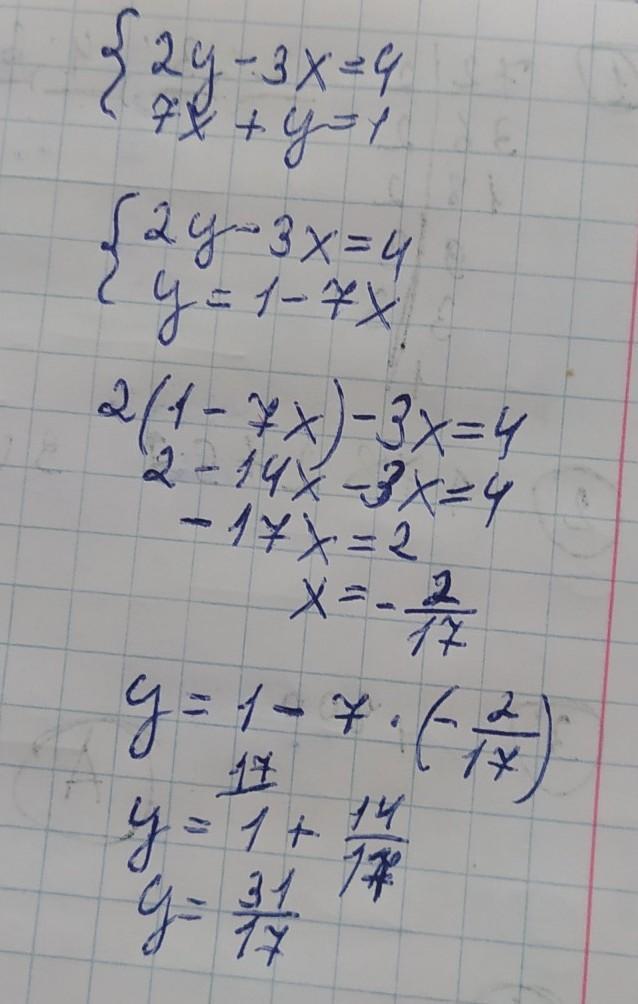 { 2y - 3x = 4
7x + y = 1
{ 2y - 3x = 4
y = 1 - 7x
2(1 - 7x) - 3x = 4
2 - 14x - 3x = 4
-17x = 2
x = - 2/17
y = 1 - 7 · (- 2/17)
17
y = 1 + 14/17
y = 31/17